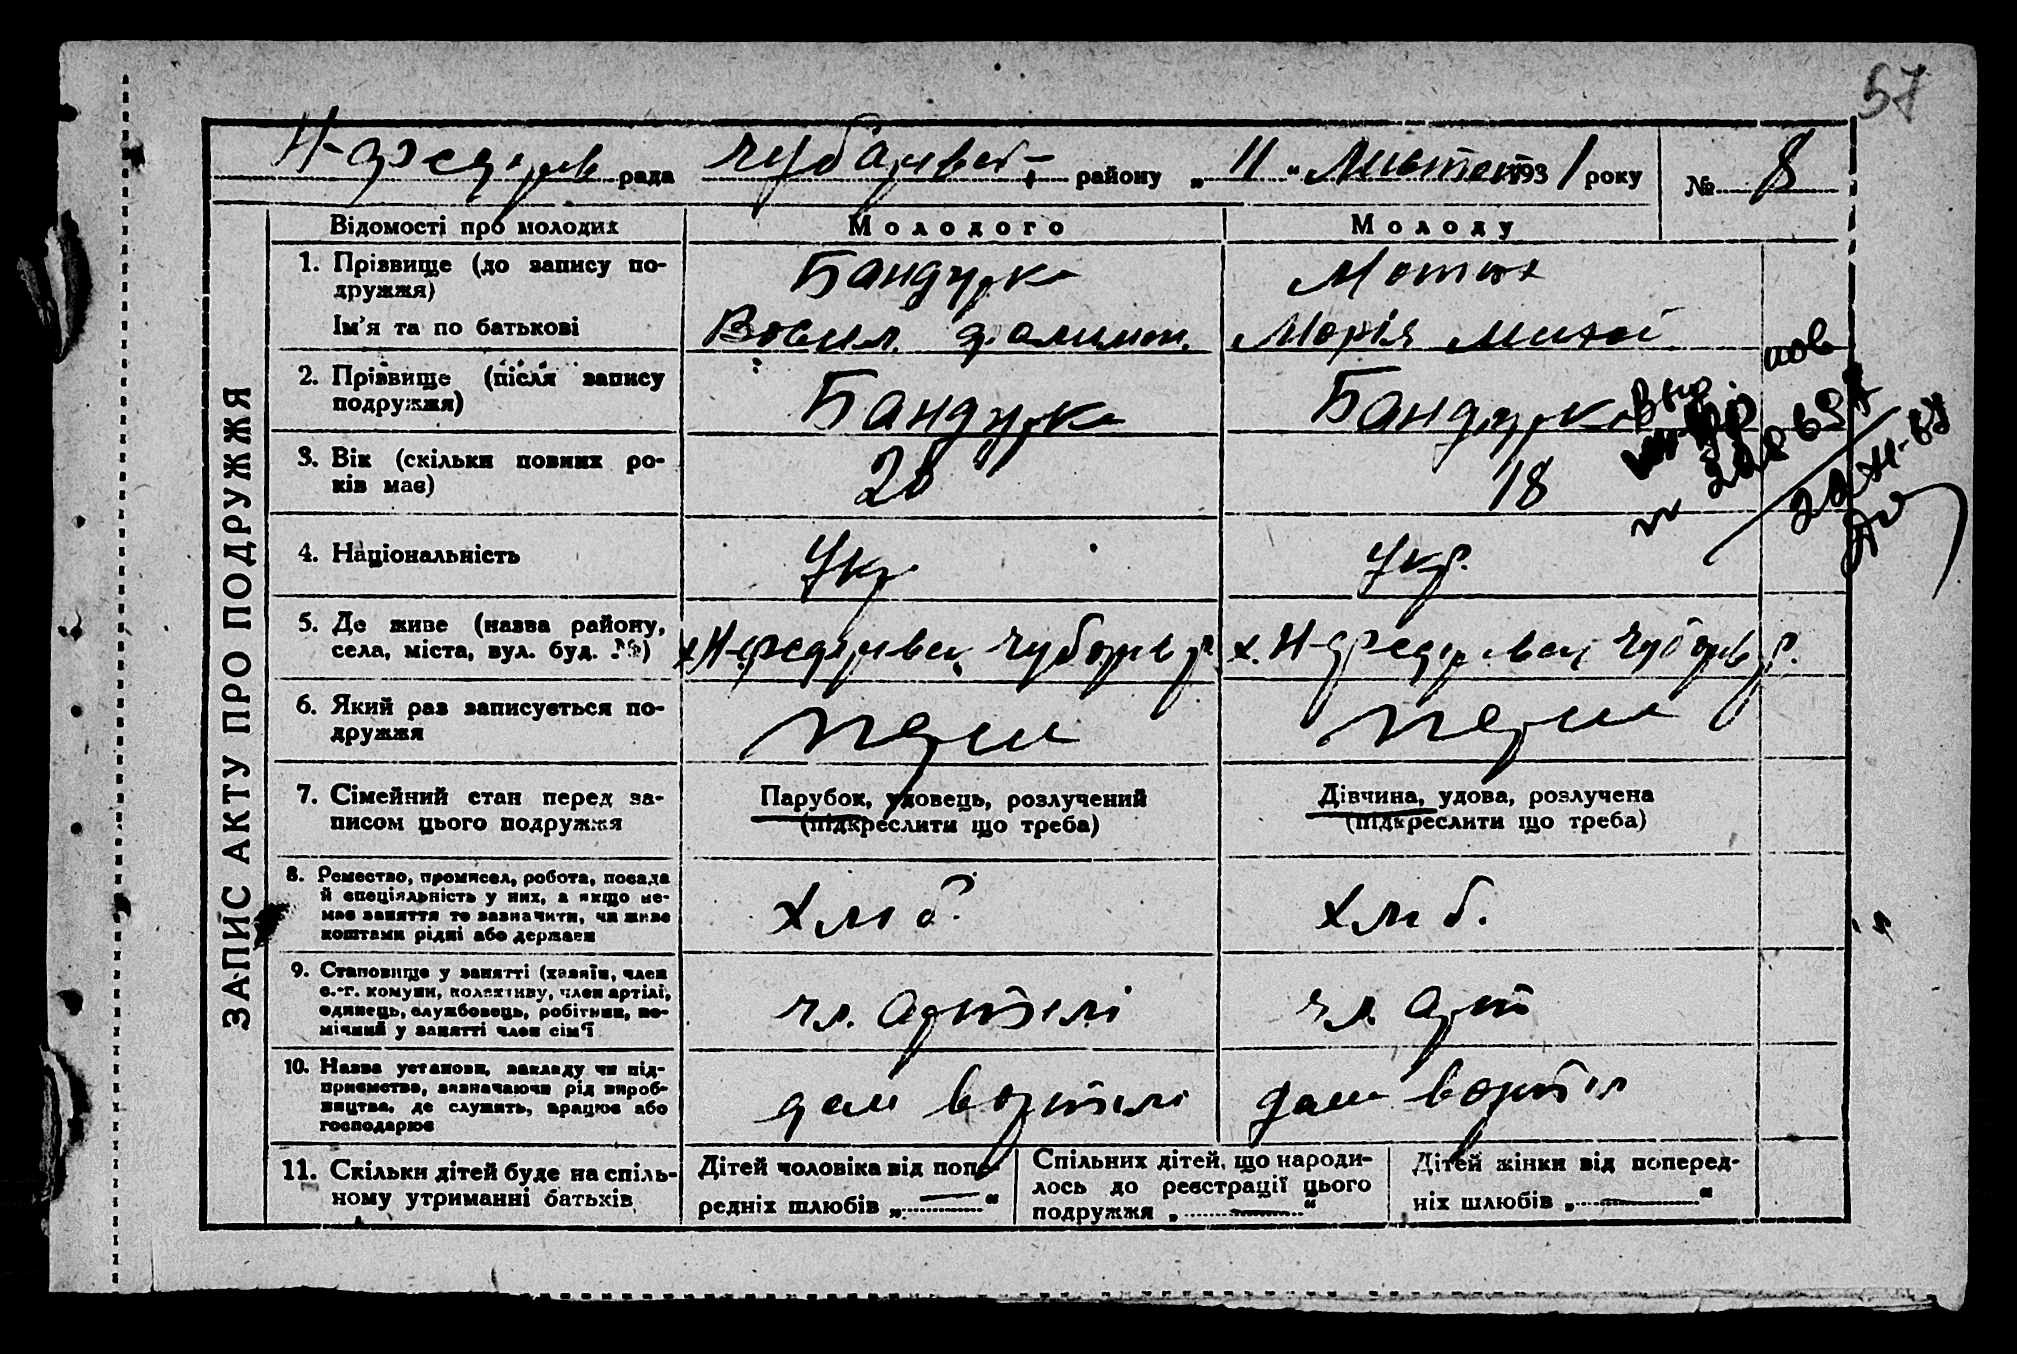 57
Н-Федорів рада Чубарівсь району „ 11 “ Листоп 1931 року № 8
ЗАПИС АКТУ ПРО ПОДРУЖЖЯ
Відомості про молодих Молодого Молоду
1. Прізвище (до запису по-
дружжя) Бандурка Мотик
Ім’я та по батькові Васил. Фалимон. Марія Михай
2. Прізвище (після запису
подружжя) Бандурка Бандурка
3. Вік (скільки повних ро-
ків має) 20 18
4. Національність Укр. Укр.
5. Де живе (назва району,
села, міста, вул. буд. №) х Н-Федорівка Чубарів р. х. Н-Федорівка Чубарів р.
6. Який раз записується по-
дружжя перш перш
7. Сімейний стан перед за-
писом цього подружжя
Парубок, удовець, розлучений
(підкреслити що треба)
Дівчина, удова, розлучена
(підкреслити що треба)
8. Ремество, промисел, робота, посада
й спеціяльність у них, а якщо не-
має заняття то зазначити, чи живе
коштами рідні або держави
хліб. хліб.
9. Становище у занятті (хазяїн, член
с.-г. комуни, колективу, член артілі,
одинець, службовець, робітник, по-
мічний у занятті член сім’ї
чл. артілі чл. арт
10. Назва установи, закладу чи під-
приємства, зазначаючи рід вироб-
ництва, де служить, працює або
господарює
вартілі вартіл
11. Скільки дітей буде на спіль-
ному утриманні батьків
Дітей чоловіка від попе-
редніх шлюбів „ — “
Спільних дітей, що народи-
лось до реєстрації цього
подружжя „ — “
Дітей жінки від поперед-
ніх шлюбів „ — “